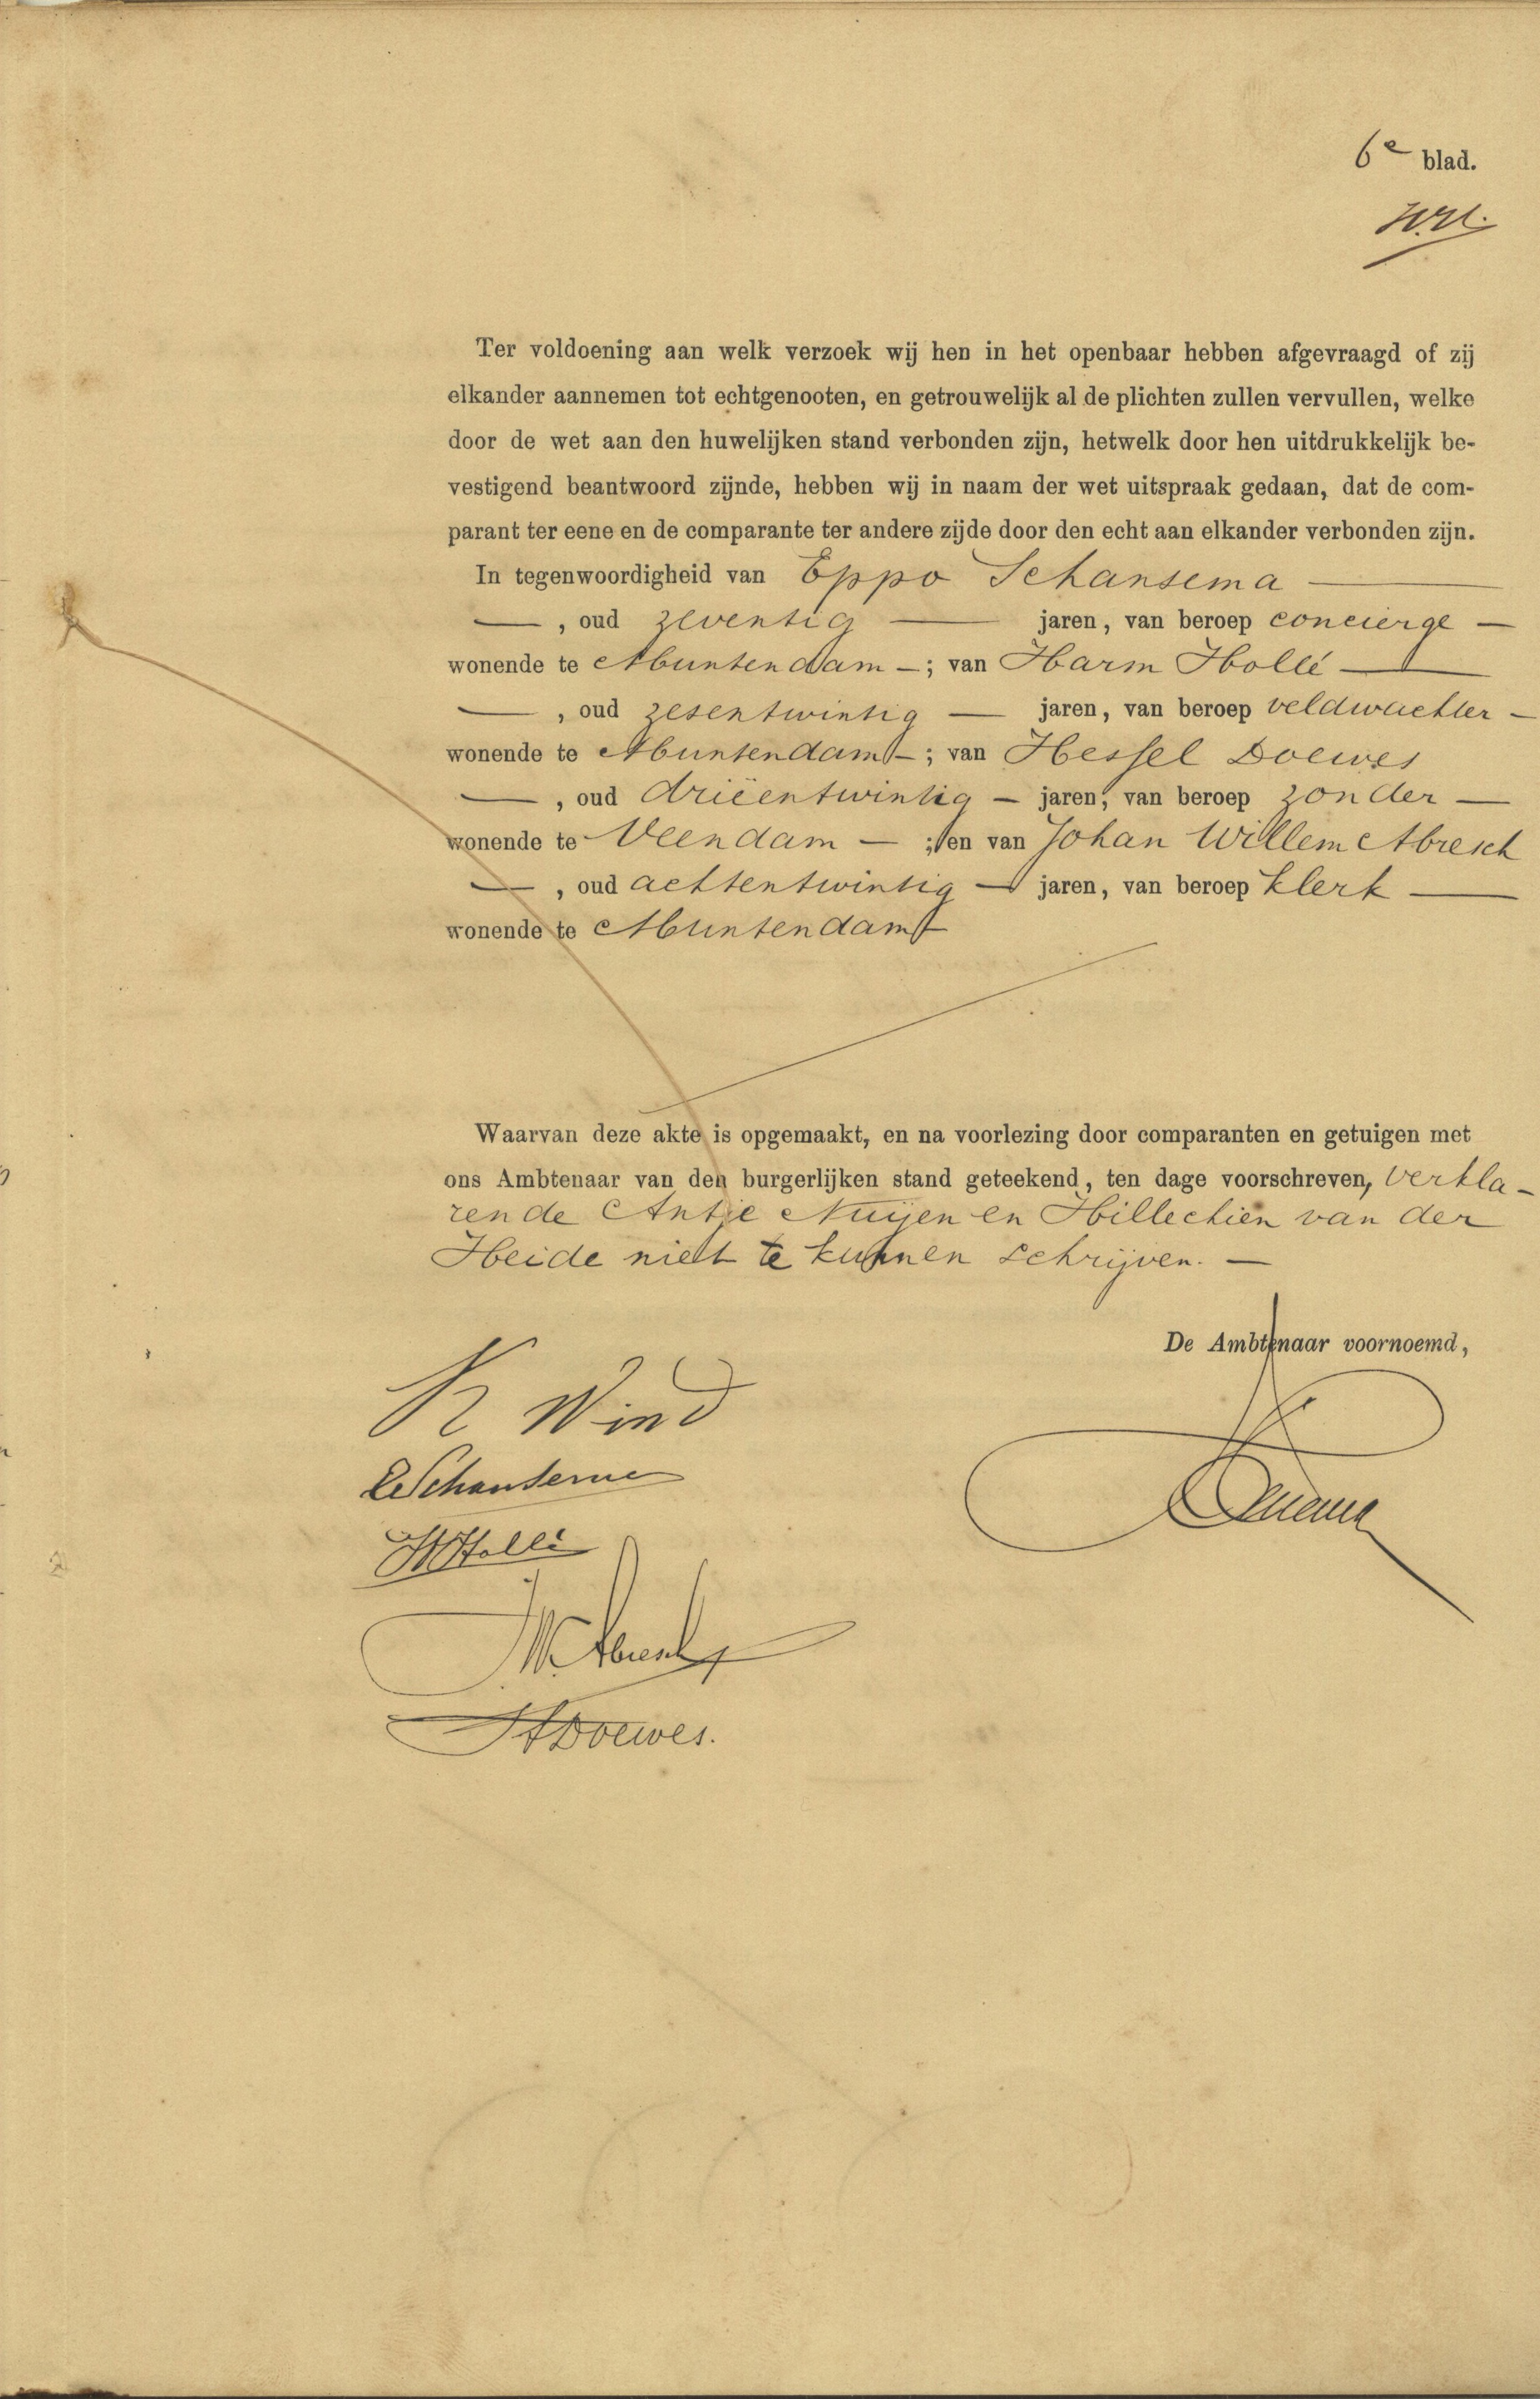 6e blad.
Ter voldoening aan welk verzoek wij hen in het openbaar hebben afgevraagd of zij
elkander aannemen tot echtgenooten, en getrouwelijk al de plichten zullen vervullen, welke
door de wet aan den huwelijken stand verbonden zijn, hetwelk door hen uitdrukkelijk be-
vestigend beantwoord zijnde, hebben wij in naam der wet uitspraak gedaan, dat de com-
parant ter eene en de comparante ter andere zijde door den echt aan elkander verbonden zijn.
In tegenwoordigheid van Eppo Schansema —
— , oud zeventig — jaren, van beroep concierge —
wonende te Muntendam — ; van Harm Hollé —
— , oud zesentwintig — jaren, van beroep veldwachter —
wonende te Muntendam — ; van Hessel Doewes
— , oud driëentwintig — jaren, van beroep zonder —
wonende te Veendam — ; en van Johan Willem Abresch
— , oud achtentwintig — jaren, van beroep klerk —
wonende te Muntendam —
Waarvan deze akte is opgemaakt, en na voorlezing door comparanten en getuigen met
ons Ambtenaar van den burgerlijken stand geteekend, ten dage voorschreven, verkla-
rende Antje Nuijen en Hillechien van der
Heide niet te kunnen schrijven. —
De Ambtenaar voornoemd,
K Wind
E Schansema
H Hollé
J W Abresch
H Doewes.